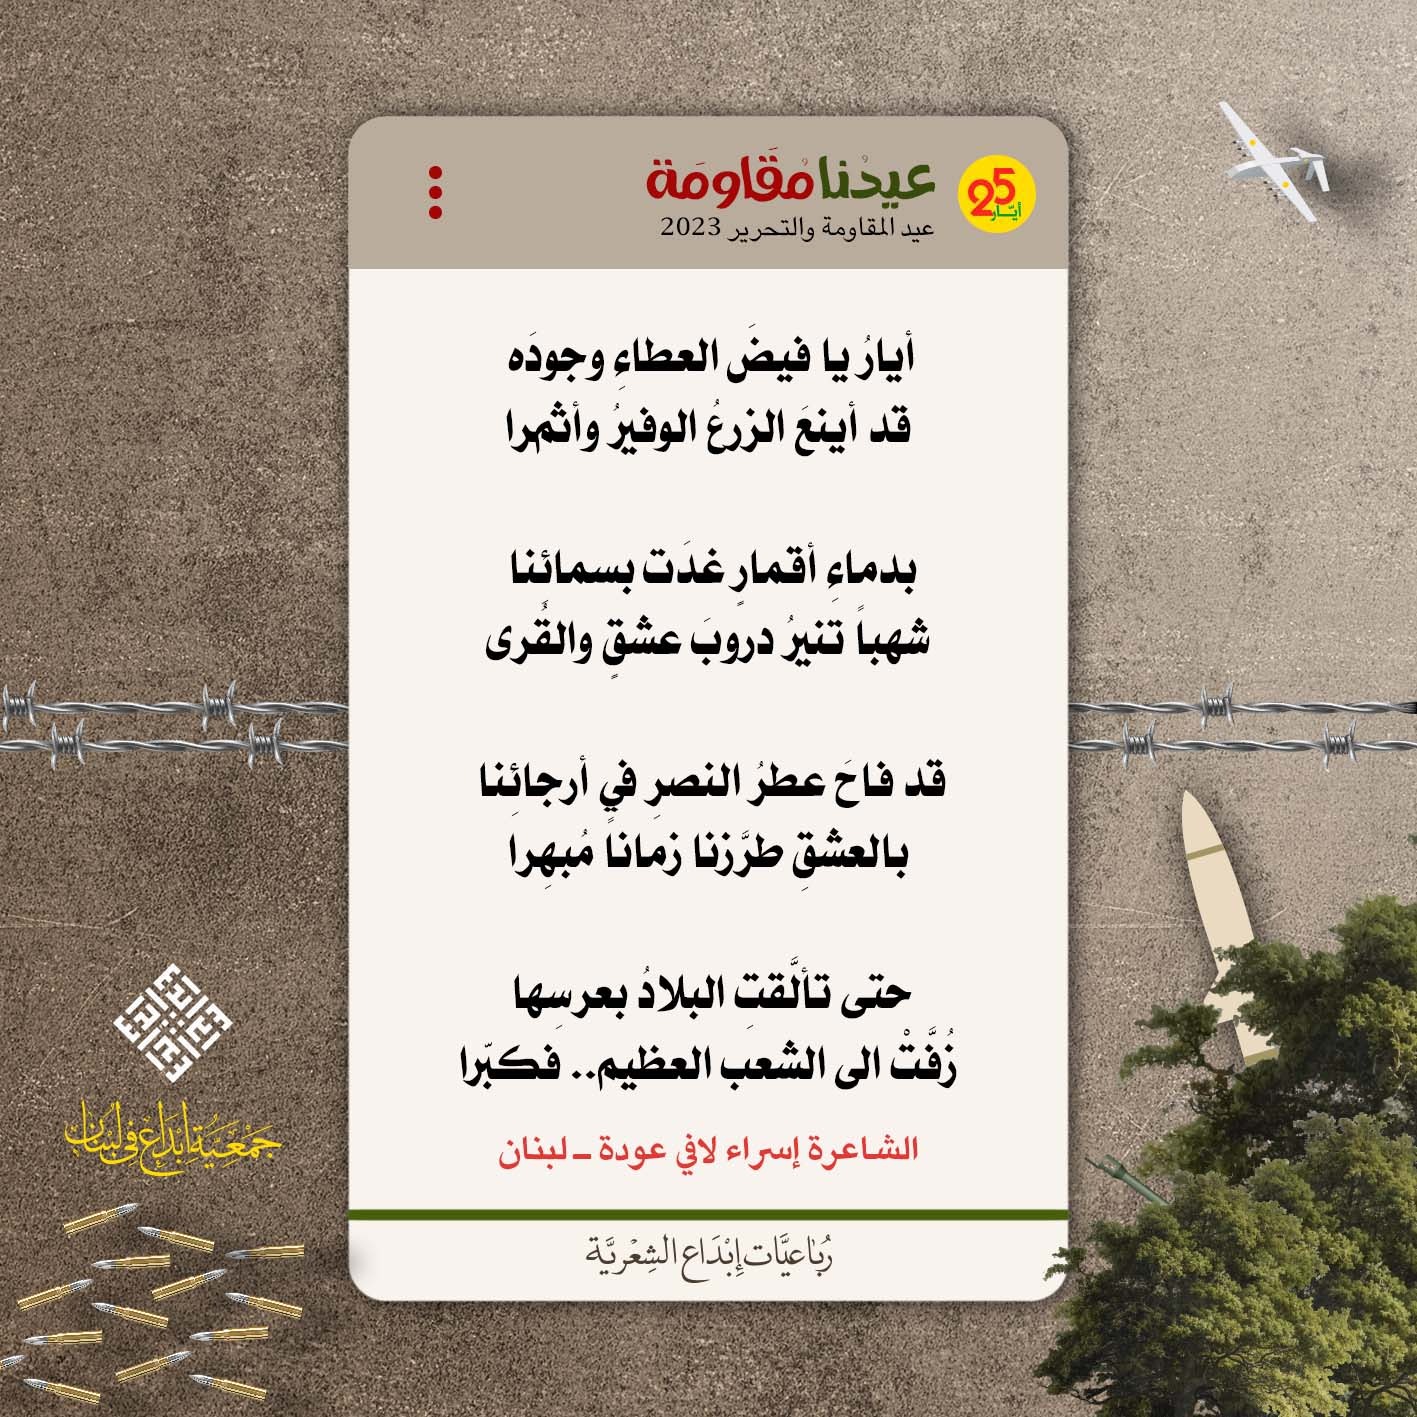 25
أيّار
عيدُنا مُقَاومَة
عيد المقاومة والتحرير 2023
أيارُ يا فيضَ العطاءِ وجودَه
قد أينعَ الزرعُ الوفيرُ وأثمرا
بدماءِ أقمارٍ غدَت بسمائنا
شهباً تنيرُ دروبَ عشقٍ والقُرى
قد فاحَ عطرُ النصرِ في أرجائِنا
بالعشقِ طرَّزنا زماناً مُبهِرا
حتى تألَّقتِ البلادُ بعرسِها
زُفَّتْ الى الشعب العظيم.. فكبّرا
الشاعرة إسراء لافي عودة ــ لبنان
رُبَاعيَّات إِبْدَاع الشِعْريَّة
جَمْعِيَّة إِبْدَاع فِي لُبْنَان